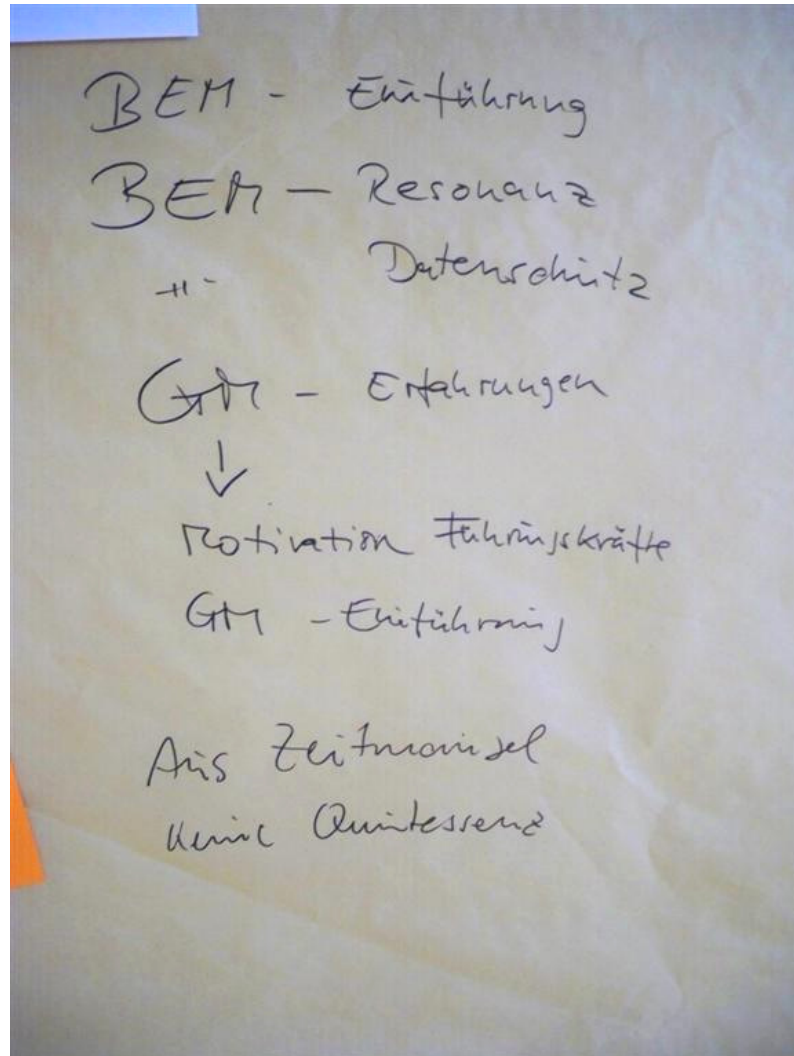 BEM - Einführung
BEM - Resonanz
-"- Datenschutz
GM - Erfahrungen
↓
Motivation Führungskräfte
GM - Einführung
Aus Zeitmangel
keine Quintessenz